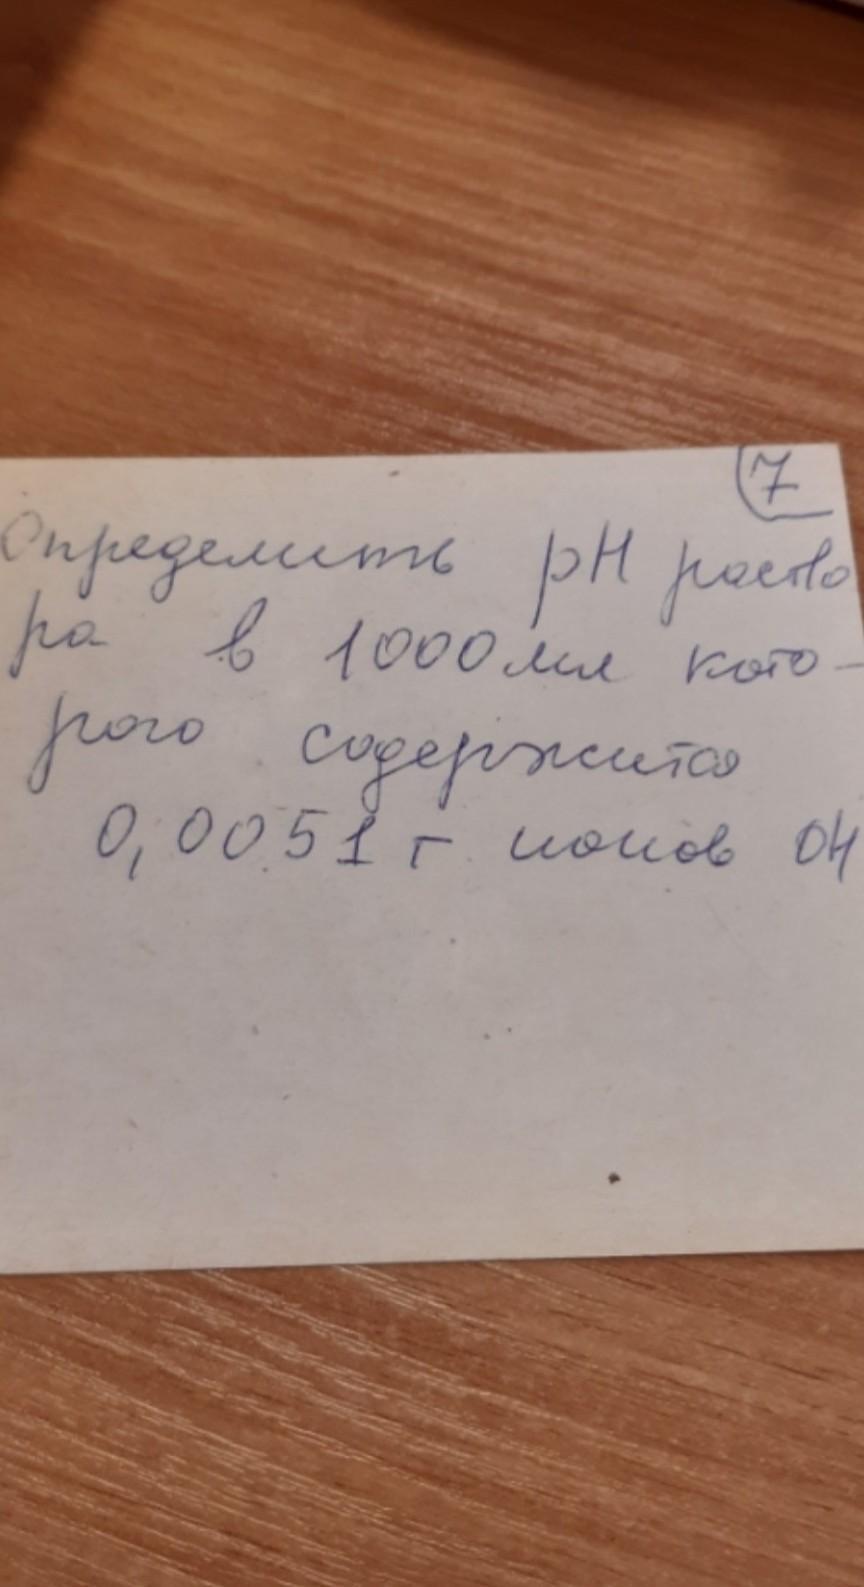 7
Определить pH раство
ра в 1000 мл кото-
рого содержится
0,0051 г ионов OH